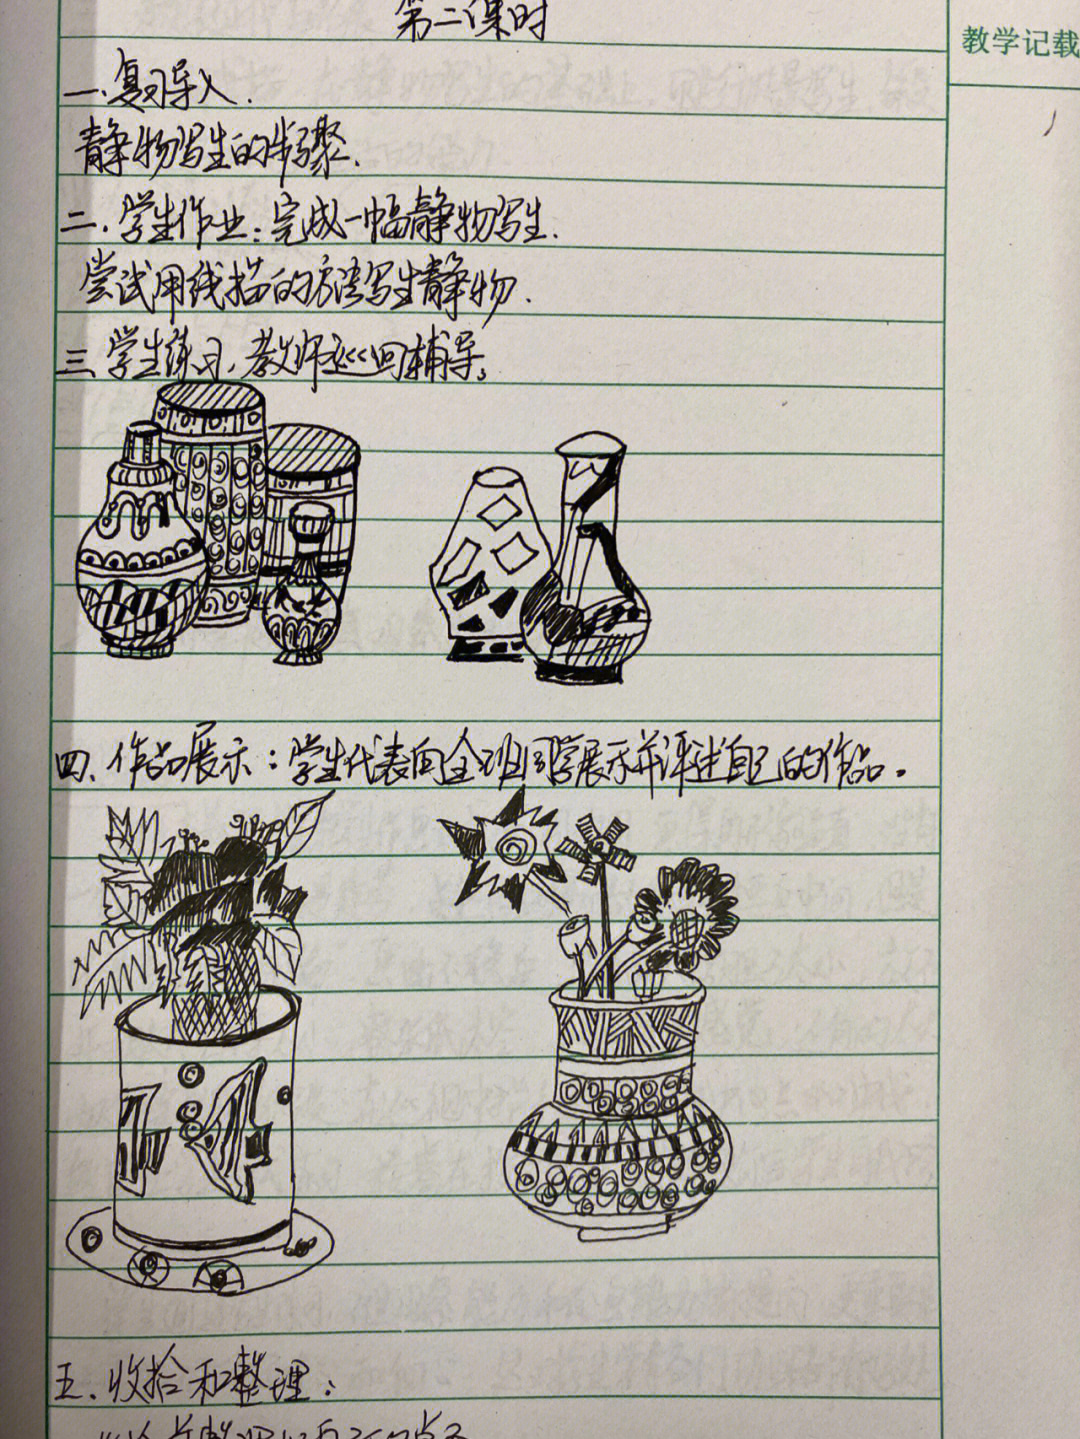 第二课时
教学记载
一.复习导入.
静物写生的步骤.
二.学生作业:完成一幅静物写生.
尝试用线描的方法写生静物.
三.学生练习,教师巡回辅导。
四.作品展示:学生代表向全班同学展示并评述自己的作品。
五.收拾和整理: